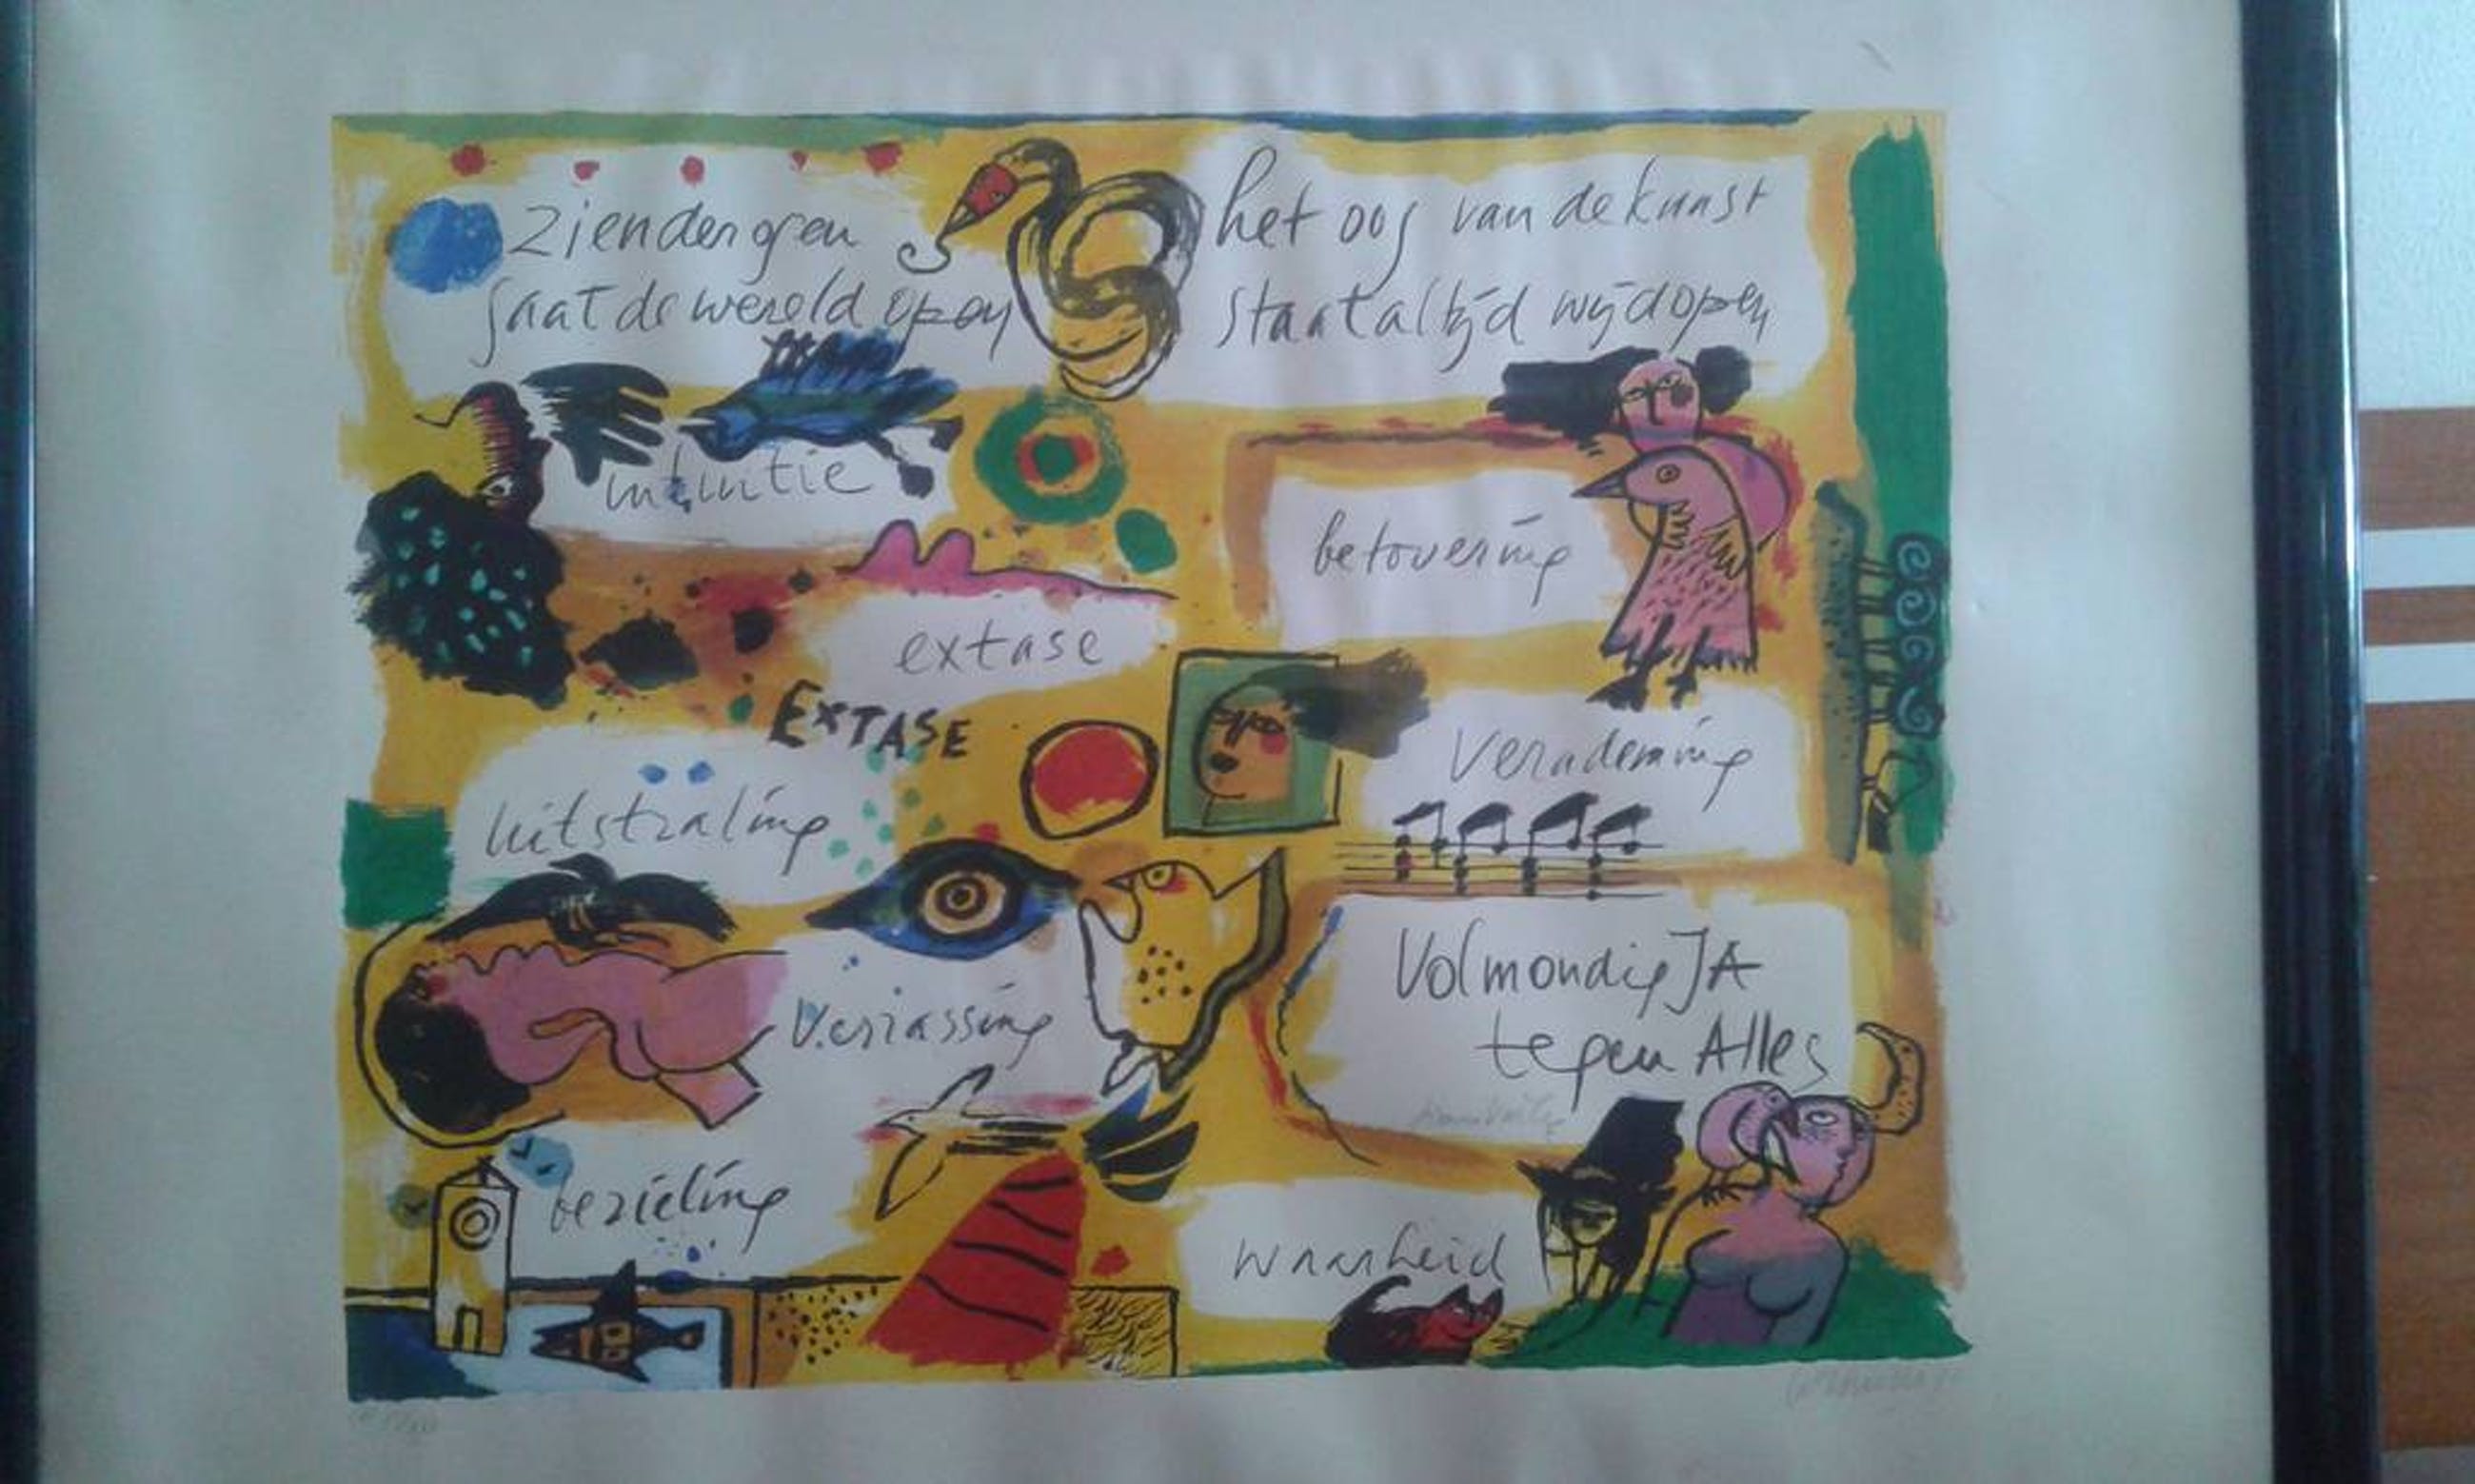 ziender ogen
gaat de wereld open
het oog van de kunst
staat altijd wijd open
intuitie
betovering
extase
EXTASE
verademing
uitstraling
Volmondig JA
tegen Alles
verrassing
bezieling
waarheid